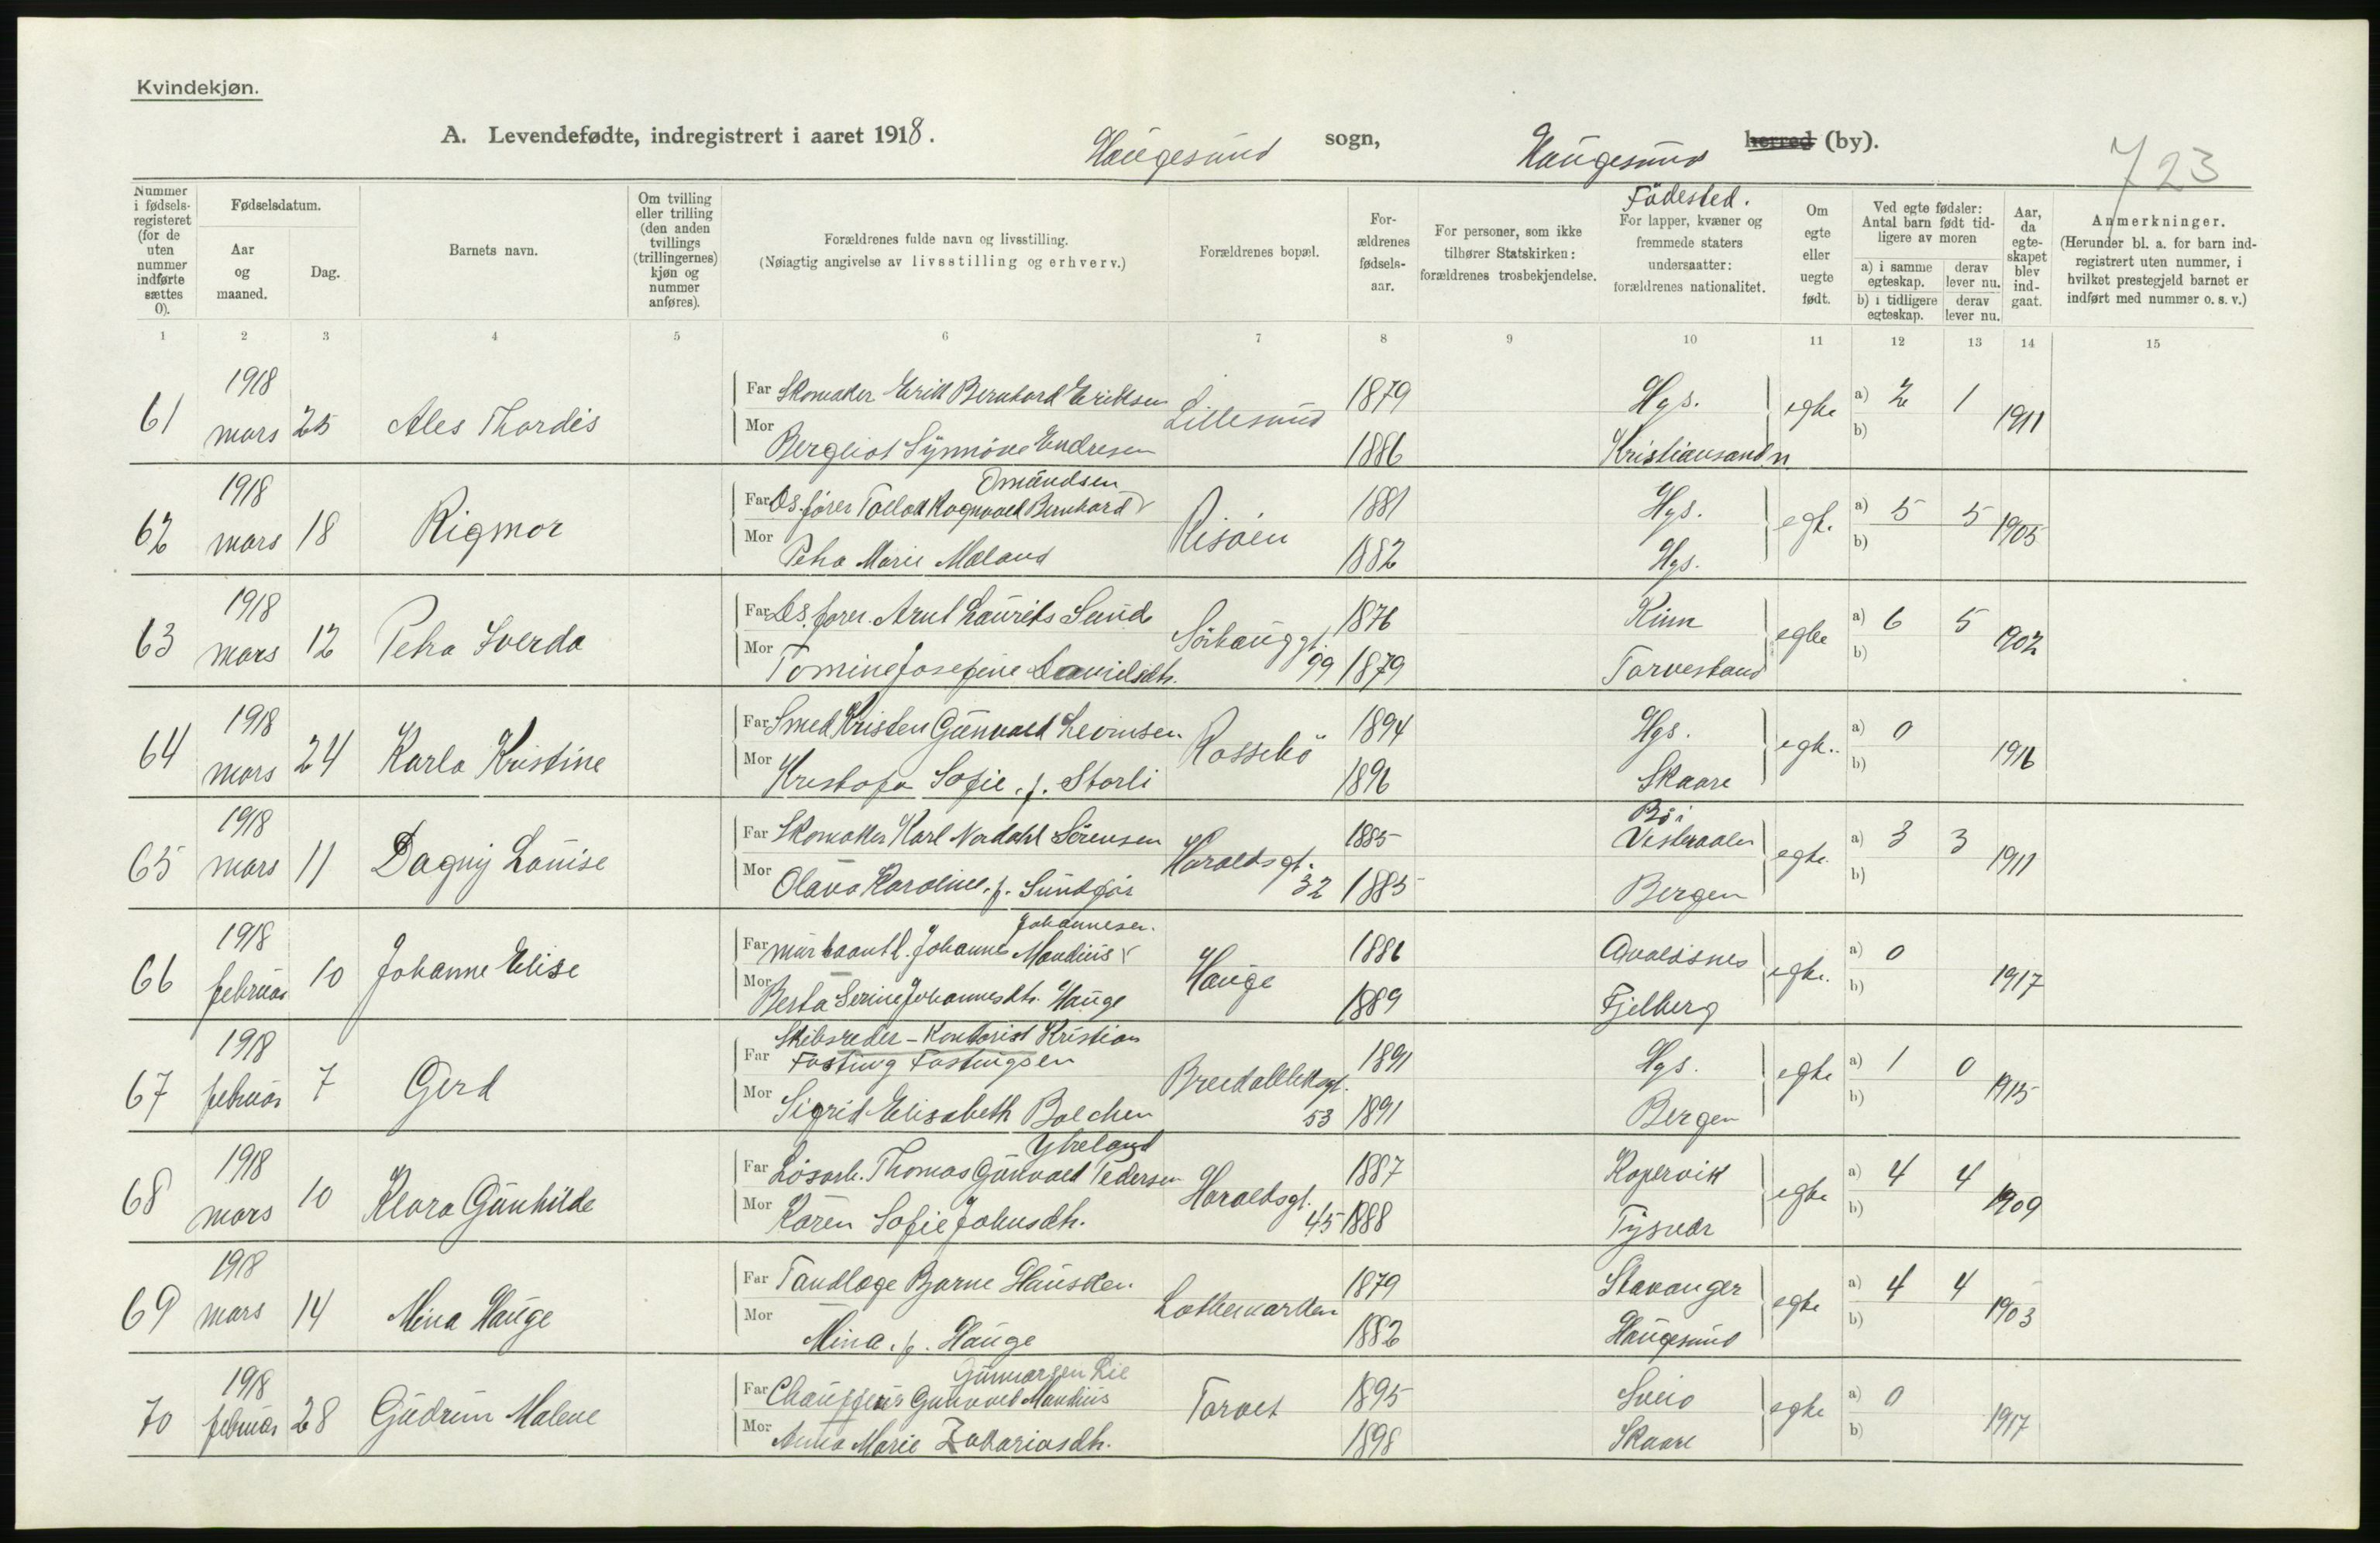 Kvindekjøn.
A. Levendefødte, indregistrert i aaret 1918. Haugesund sogn, Haugesund herred (by).
723
Nummer i fødselsregisteret (for de uten nummer indførte sættes 0).
Fødselsdatum.
Aar og maaned.
Dag.
Barnets navn.
Om tvilling eller trilling (den anden tvillings (trillingernes) kjøn og nummer anføres).
Forældrenes fulde navn og livsstilling.
(Nøiagtig angivelse av livsstilling og erhverv.)
Forældrenes bopæl.
Forældrenes fødselsaar.
For personer, som ikke tilhører Statskirken: forældrenes trosbekjendelse.
Födested.
For lapper, kvæner og fremmede staters undersaatter: forældrenes nationalitet.
Om egte eller uegte født.
Ved egte fødsler: Antal barn født tidligere av moren
a) i samme egteskap. derav lever nu.
b) i tidligere egteskap. derav lever nu.
Aar, da egteskapet blev indgaat.
Anmerkninger.
(Herunder bl. a. for barn indregistrert uten nummer, i hvilket prestegjeld barnet er indført med nummer o. s. v.)
1 2 3 4 5 6 7 8 9 10 11 12 13 14 15
61 1918 mars 25 Ales Thordis
Far Skomaker Erik Bernhard Eriksen Lillesund 1879 Hgs. egte a) 2 1 1911
Mor Bergliot Synnöve Endresen 1886 Kristiansand n b)
62 1918 mars 18 Rigmor
Omundsen
Far Ds.fører Tollak Ragnvald Bernhard Risøen 1881 Hgs. egte a) 5 5 1905
Mor Petra Marie Maland 1882 Hgs. b)
63 1918 mars 12 Petra Sverda
Far Ds. fører Arnt Laurits Sund Sörhauggt. 99 1876 Kinn egte a) 6 5 1902
Mor Tomine Josefine Danielsdtr. 1879 Torvestand b)
64 1918 mars 24 Karla Kristine
Far Smed Kristen Gunvald Levinsen Rossebö 1894 Hgs. egte a) 0 1916
Mor Kristofa Sofie f. Storli 1896 Skaare b)
65 1918 mars 11 Dagny Louise
Far Skomaker Karl Nordahl Sörensen Haraldsgt. 32 1885 Bö i Vesteraalen egte a) 3 3 1911
Mor Olava Karoline f. Sundfør 1885 Bergen b)
66 1918 februar 10 Johanne Elise
Johannesen.
Far murhaantl. Johannes Mandius Hauge 1886 Avaldsnes egte a) 0 1917
Mor Berta Serine Johannesdtr. Hauge 1889 Fjelberg b)
67 1918 februar 7 Gerd
Skibsreder - Kontorist Kristian
Far Fasting Fastingsen 53 1891 Hgs. egte a) 1 0 1915
Mor Sigrid Elisabeth Balchen 1891 Bergen b)
68 1918 mars 10 Klara Gunhilde
Far Løsarb. Thomas Gunvald Pedersen Haraldsgt. 45 1887 Kopervik egte a) 4 4 1909
Mor Karen Sofie Johnsdtr. 1888 Tysvær b)
69 1918 mars 14 Mina Hauge
Far Tandlæge Bjarne Hausken 1879 Stavanger egte a) 4 4 1903
Mor Mina f. Hauge 1882 Haugesund b)
70 1918 februar 28 Gudrun Malene
Gunnarsen Lie
Far Chauffeur Gunvald Mandius Torvet 1895 Sveio egte a) 0 1917
Mor Anna Marie Zakariasdtr. 1898 Skaare b)